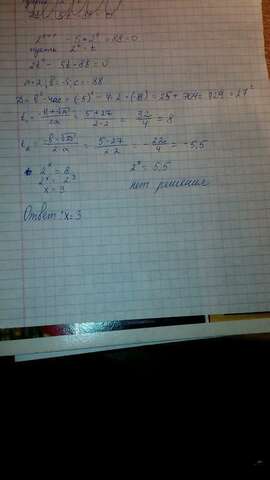 2ˣ⁺¹ - 5·2ˣ - 88 = 0
пусть 2ˣ = t
2t² - 5t - 88 = 0
a = 2, b = -5, c = -88
D = b² - 4ac = (-5)² - 4·2·(-88) = 25 + 704 = 729 = 27²
t₁ = (-b + √D)/2a = (5 + 27)/(2·2) = 32/4 = 8
t₂ = (-b - √D)/2·a = (5 - 27)/(2·2) = -22/4 = -5,5
2ˣ = 8 2ˣ = 5,5
2ˣ = 2³ нет решения
x = 3
Ответ: x = 3